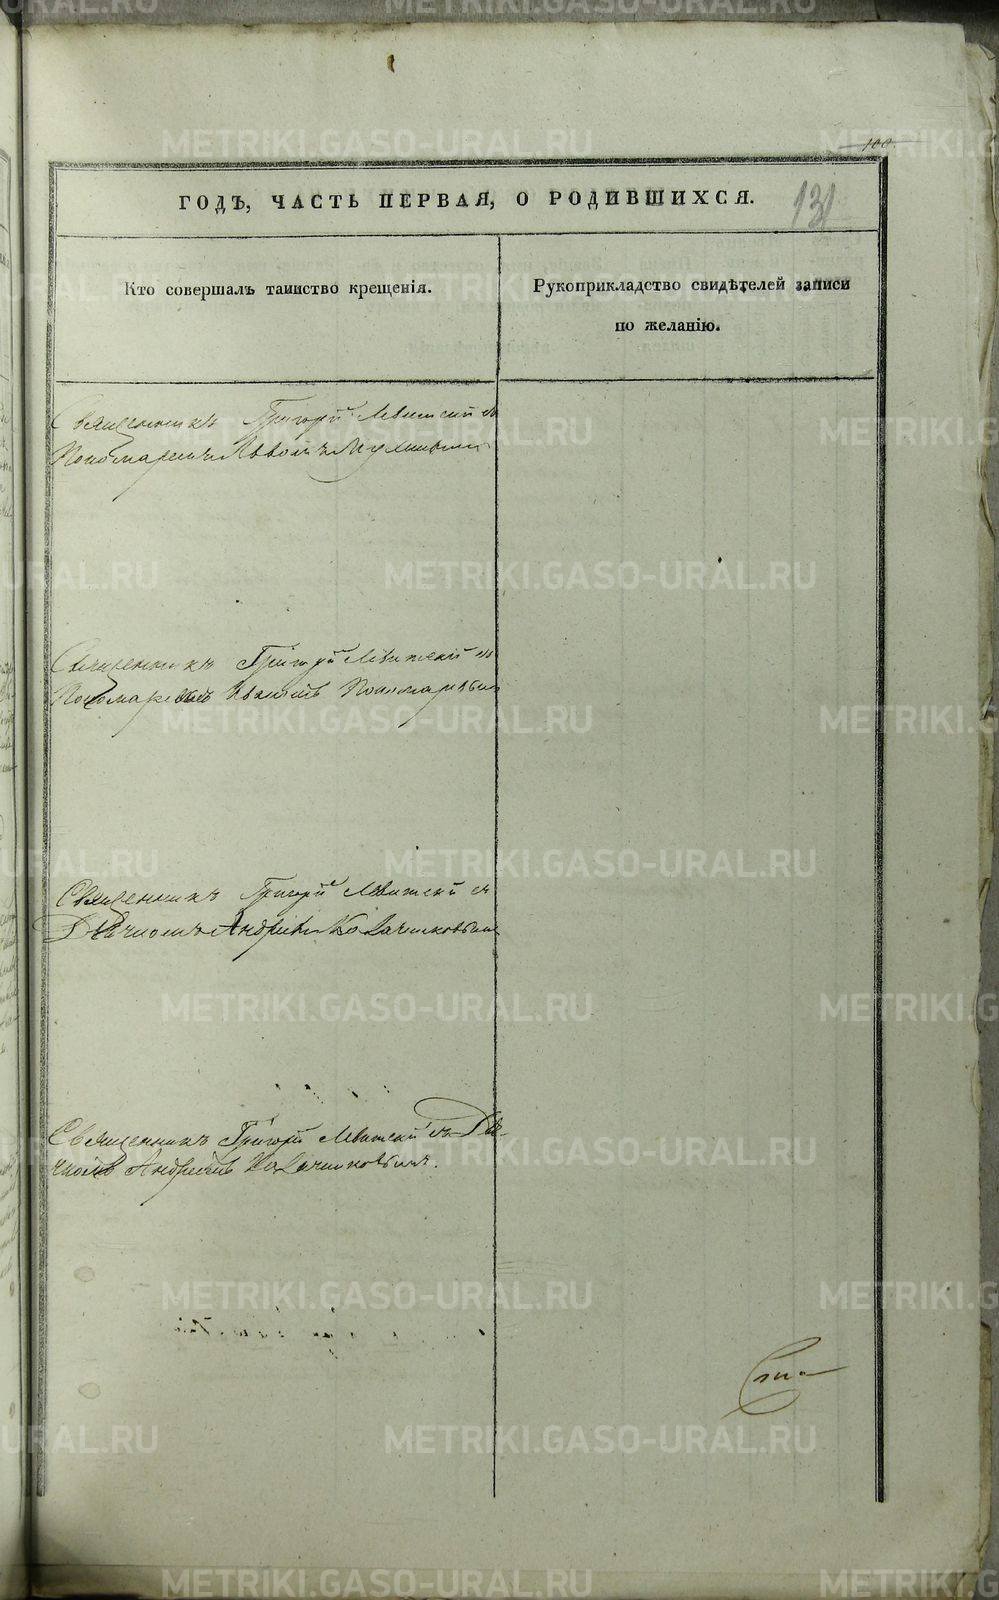 100
ГОДЪ, ЧАСТЬ ПЕРВАЯ, О РОДИВШИХСЯ.
131
Кто совершалъ таинство крещенія.
Рукоприкладство свидѣтелей записи
по желанію.
Священникъ Григорій Левитскій съ
Пономаремъ
Священникъ Григорій Левитскій съ
Пономаремъ Иваномъ Пономаревымъ
Священникъ Григорій Левитскій съ
Дьячкомъ Андреемъ Колачниковымъ
Священникъ Григорій Левитскій съ Дья-
чкомъ Андреемъ Колачниковымъ.
METRIKI.GASO-URAL.RU